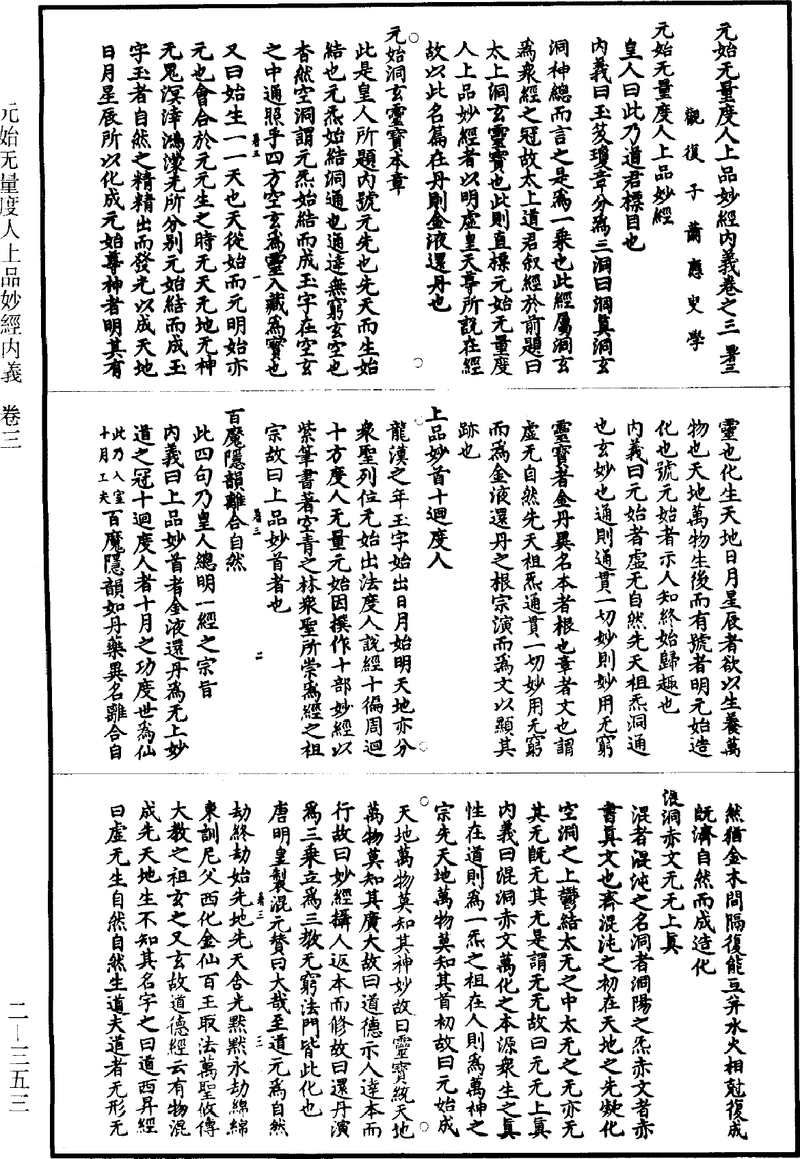 元始无量度人上品妙經內義卷之三 暑三
觀復子蕭應叟學
元始无量度人上品妙經
皇人曰此乃道君標目也
內義曰玉笈瓊章分為三洞曰洞真洞玄
洞神總而言之是為一乗也此經屬洞玄
為衆經之冠故太上道君叙經於前題曰
太上洞玄靈寶也此則直標元始无量度
人上品妙經者以明虛皇天尊所說在經
故以此名篇在丹則金液還丹也
元始洞玄靈寶本章
此是皇人所題內號元先也先天而生始
結也元炁始結洞通也通達無窮玄空也
杳然空洞謂元炁始結而成玉字在空玄
之中通照乎四方空玄為靈入藏為寶也
暑三 一
又曰始生一一天也天從始而元明始亦
元也會合於元元生之時无天无地无神
无鬼溟涬鴻濛无所分別元始結而成玉
字玉者自然之精精出而發光以成天地
日月星辰所以化成元始尊神者明其有
靈也化生天地日月星辰者欲以生養萬
物也天地萬物生後而有號者明元始造
化也號元始者示人知終始歸趣也
內義曰元始者虛无自然先天祖炁洞通
也玄妙也通則通貫一切妙則妙用无窮
靈寶者金丹異名本者根也章者文也謂
虛无自然先天祖炁通貫一切妙用无窮
而為金液還丹之根宗演而為文以顯其
跡也
上品妙首十迴度人
龍漢之年玉字始出日月始明天地亦分
衆聖列位元始出法度人說經十徧周迴
十方度人无量元始因撰作十部妙經以
紫筆書著空青之林衆聖所崇為經之祖
宗故曰上品妙首者也
暑三 二
百魔隱韻離合自然
此四句乃皇人總明一經之宗旨
內義曰上品妙首者金液還丹為无上妙
道之冠十迴度人者十月之功度世為仙
此乃入室十月工夫百魔隱韻如丹藥異名離合自
然猶金木間隔復能互并水火相尅復成
旣濟自然而成造化
混洞赤文无无上真
混者混沌之名洞者洞陽之炁赤文者赤
書真文也齊混沌之初在天地之先凝化
空洞之上鬱結太无之中太无之无亦无
其无旣无其无是謂无无故曰无无上真
內義曰混洞赤文萬化之本源衆生之真
性在道則為一炁之祖在人則為萬神之
宗先天地萬物莫知其首初故曰元始成
天地萬物莫知其神妙故曰靈寶統天地
萬物莫知其廣大故曰道德示人達本而
行故曰妙經攝人返本而修故曰還丹演
為三乘立為三教无窮法門皆此化也
唐明皇製混元贊曰大哉至道元為自然
暑三 三
劫終劫始先地先天含光黙黙永劫綿綿
東訓尼父西化金仙百王取法萬聖攸傳
大教之祖玄之又玄故道德經云有物混
成先天地生不知其名字之曰道西昇經
曰虛无生自然自然生道夫道者无形无
元始无量度人上品妙經內義 卷三
二―三五三